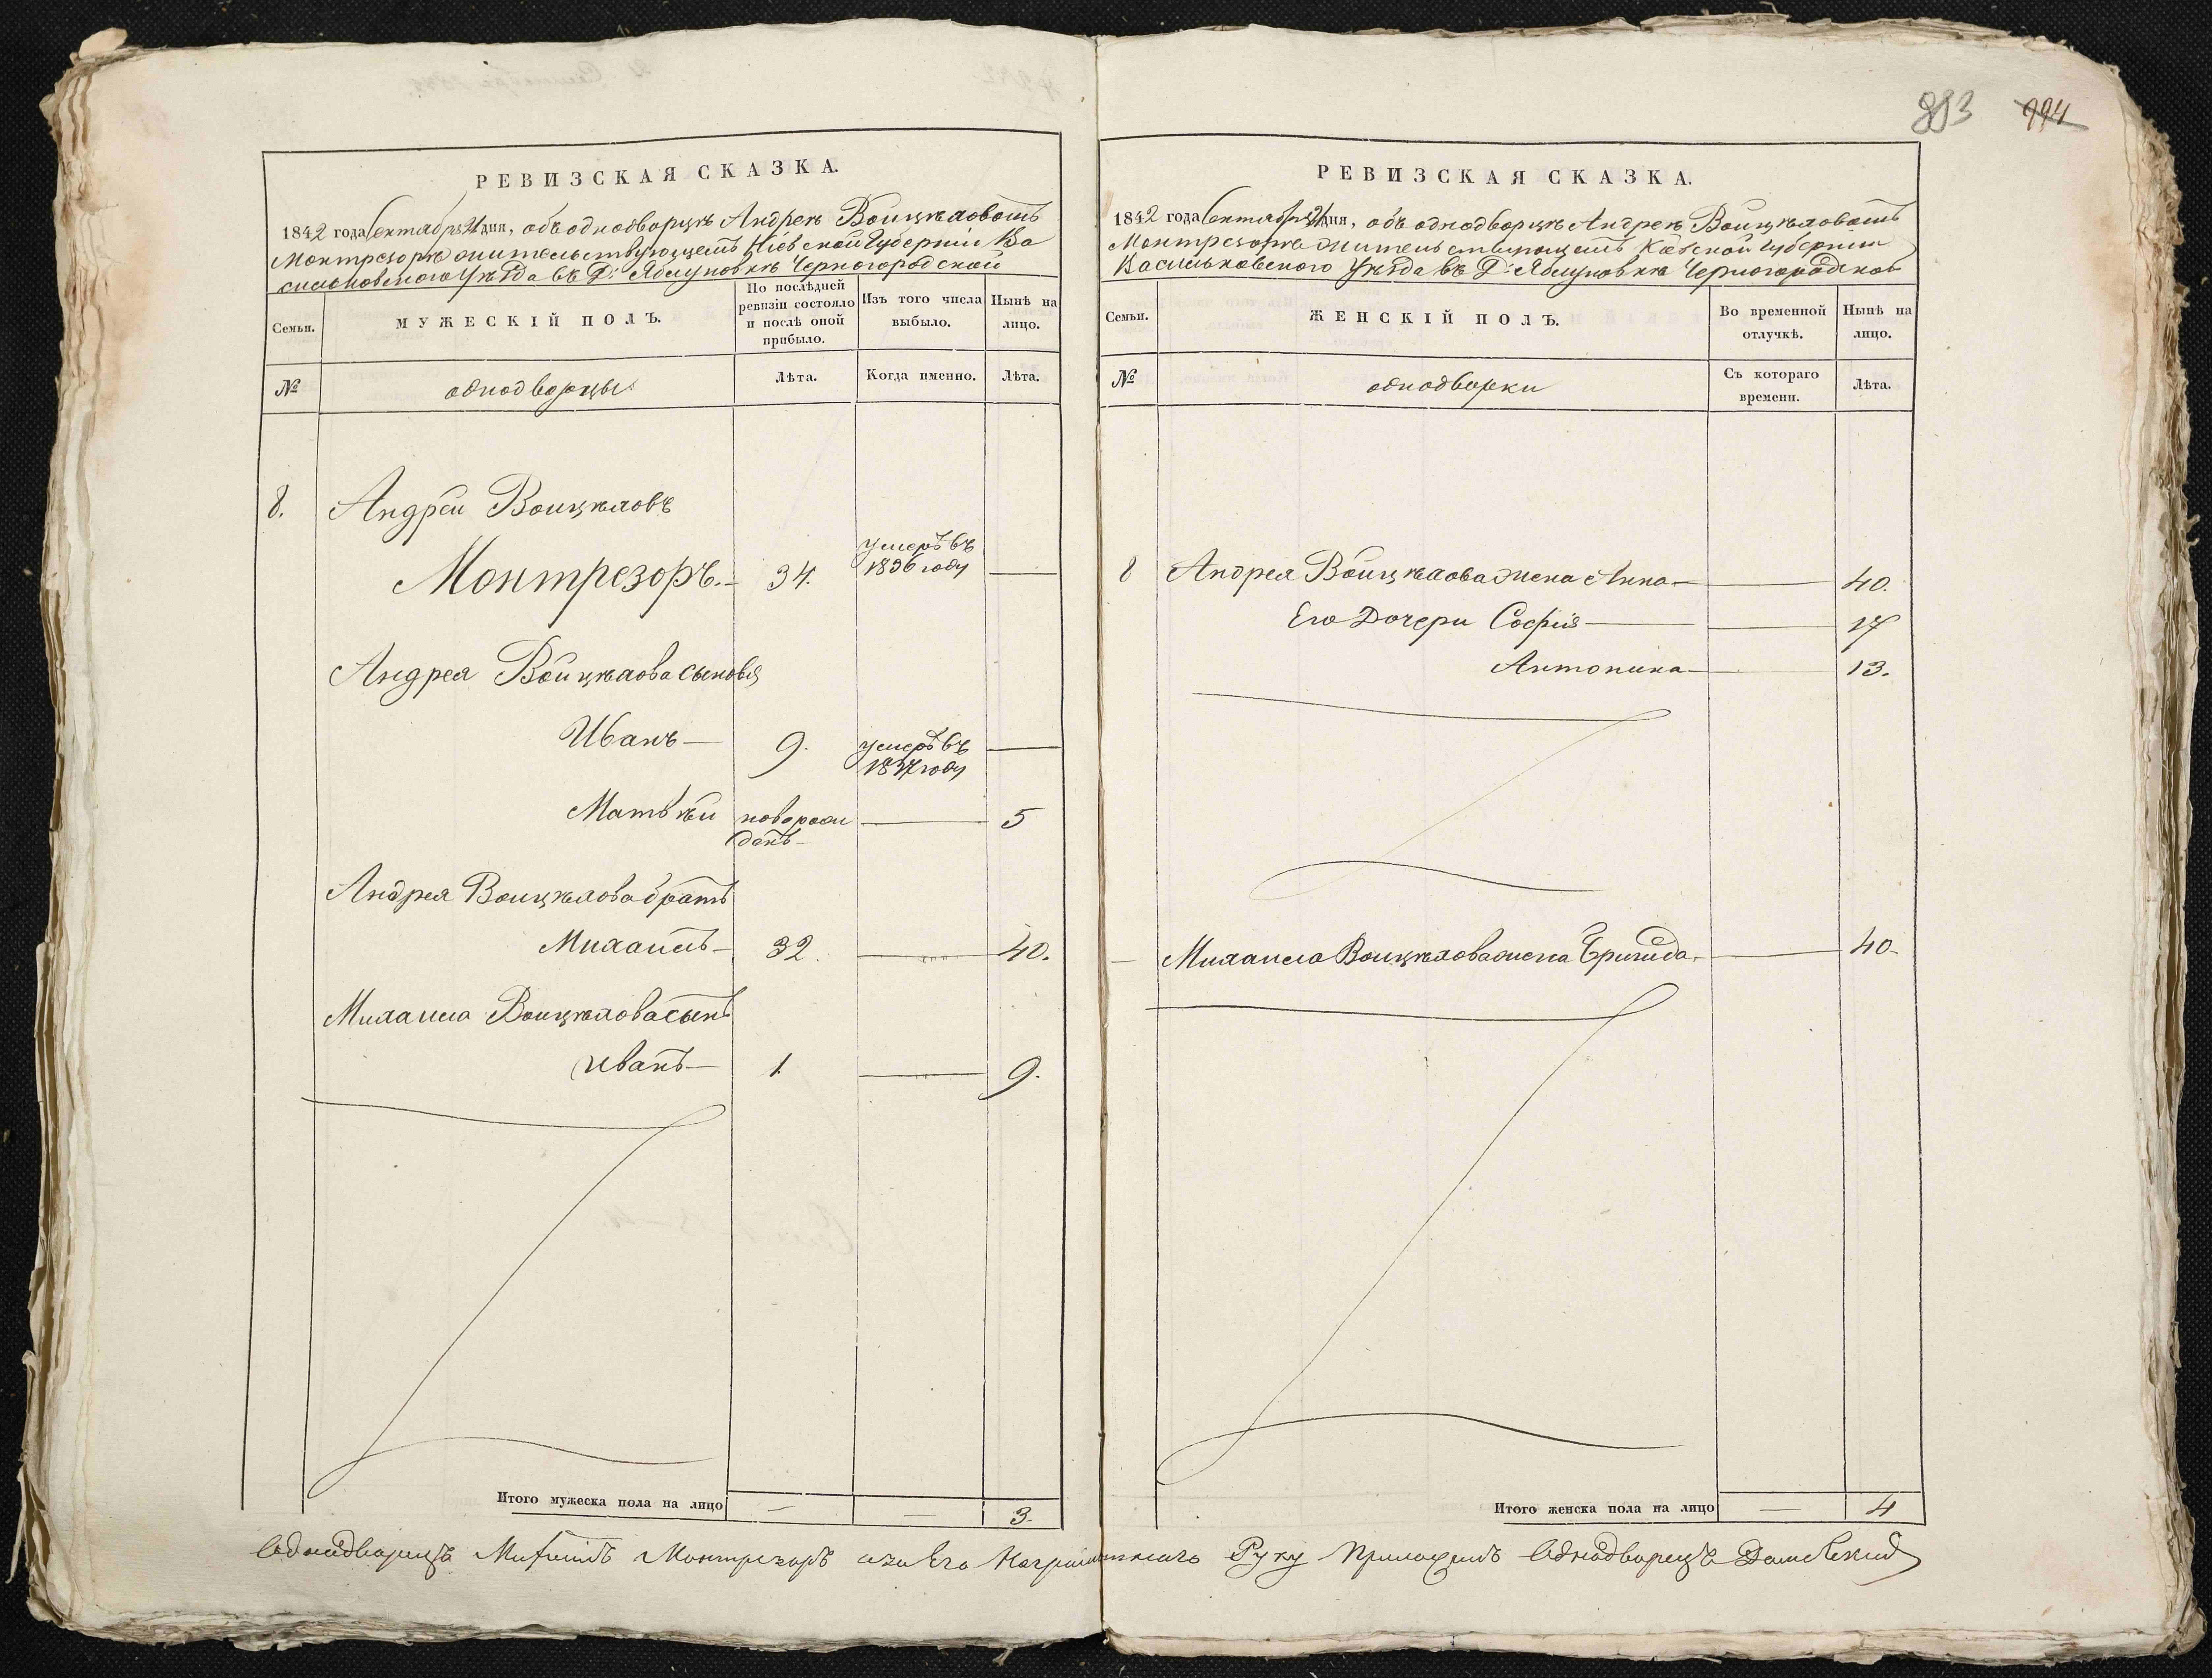 893 994
РЕВИЗСКАЯ СКАЗКА.
1842 года Сентября 21 дня, объ однодворцѣ Андреѣ Войцѣховомъ
Монтрезорѣ жительствующемъ Кіевской Губерніи Ва
сильковскаго Уѣзда въ Д: Яблуновкѣ Черногородской
Семьи.
МУЖЕСКІЙ ПОЛЪ.
По послѣдней
ревизіи состояло
и послѣ оной
прибыло.
Изъ того числа
выбыло.
Нынѣ на
лицо.
№
однодворцы
Лѣта.
Когда именно.
Лѣта.
8. Андрей Войцѣховъ
Монтрезоръ. 34. умеръ въ
1836 году
Андрея Войцѣхова сыновья
Иванъ 9. умеръ въ
1837 году
Матвѣй новорож 5
денъ
Андрея Войцѣхова братъ
Михаилъ 32. 40.
Михаила Войцѣхова сынъ
Иванъ 1 9.
Итого мужеска пола на лицо — — 3.
РЕВИЗСКАЯ СКАЗКА.
1842 года Сентября 21 дня, объ однодворцѣ Андреѣ Войцѣховомъ
Монтрезорѣ жительствующемъ Кіевской Губерніи
Васильковскаго Уѣзда въ Д: Яблуновкѣ Черногородской
Семьи.
ЖЕНСКІЙ ПОЛЪ.
Во временной
отлучкѣ.
Нынѣ на
лицо.
№
однодворки
Съ котораго
времени.
Лѣта.
8 Андрея Войцѣхова жена Анна 40.
Его Дочери Софія 17
Антонина 13.
Михаила Войцѣхова жена Бригида 40.
Итого женска пола на лицо — 4
Однодворецъ Монтрезоръ а за Его Неграмотнаго Руку Приложилъ Однодворецъ